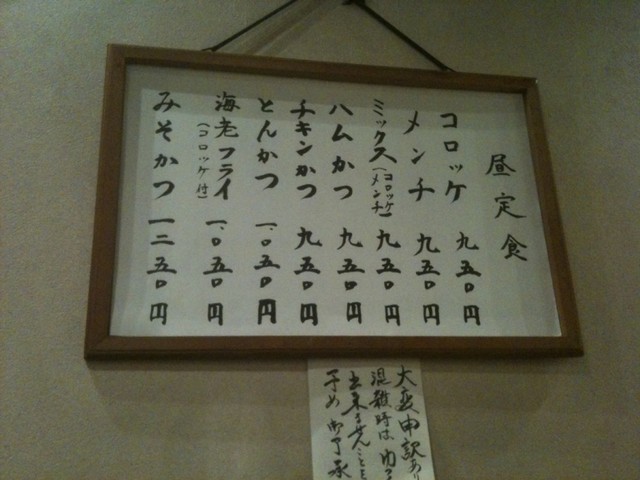 昼定食
コロッケ 九五〇円
メンチ 九五〇円
ミックス(コロッケ メンチ) 九五〇円
ハムかつ 九五〇円
チキンかつ 九五〇円
とんかつ 一.〇五〇円
海老フライ(コロッケ付) 一.〇五〇円
みそかつ 一二五〇円
大変申訳あり
混雑時は
出来ませんことを
予め御了承